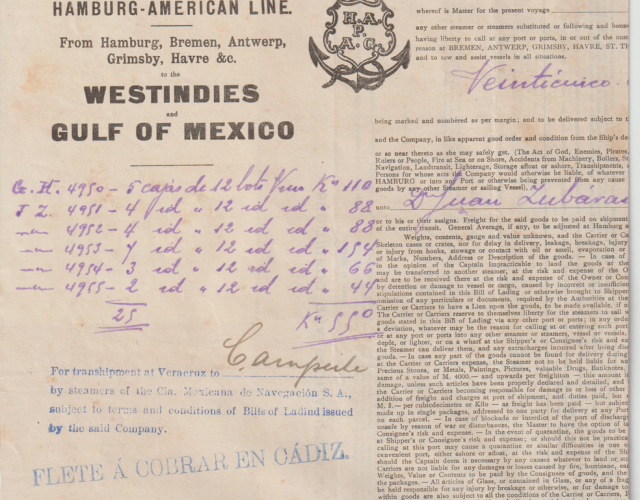 HAMBURG-AMERICAN LINE.
From Hamburg, Bremen, Antwerp,
Grimsby, Havre &c.
to the
WESTINDIES
and
GULF OF MEXICO
H. A.
P.
A. G.
4950 - 5 cajas de 12 bots Vino Ko 110
4951 - 4 id " 12 id id " 88
4952 - 4 id " 12 id id " 88
4953 - 7 id " 12 id id " 154
4954 - 3 id " 12 id id " 66
4955 - 2 id " 12 id id " 44
25 Ko 550
Campeche
For transhipment at Veracruz to
by steamers of the Cia. Mexicana de Navegación S. A.,
subject to terms and conditions of Bills of Lading issued
by the said Company.
FLETE Á COBRAR EN CÁDIZ.
whereof is Master for the present voyage
any other steamer or steamers substituted or following and
having liberty to call at any port or ports, in or out of the
reason at BREMEN, ANTWERP, GRIMSBY, HAVRE, ST.
and to tow and assist vessels in all situations.
Veinticinco
being marked and numbered as per margin; and to be delivered subject to
and the Company, in like apparent good order and condition from the Ship's
or so near thereto as she may safely get. (The Act of God, Enemies, Pirates,
Rulers or People, Fire at Sea or on Shore, Accidents from Machinery, Boilers,
Navigation, Landtransit, Lighterage, Storage afloat or ashore, Transhipments,
Persons for whose acts the Company would otherwise be liable, of whatever
HAMBURG or Port or otherwise being prevented from any cause
goods by any other Steamer or sailing Vessel),
unto Dn Juan
or to his or their assigns. Freight for the said goods to be paid on shipment
of the entire transit. General Average, if any, to be adjusted at Hamburg
Weights, contents, gauge and value unknown, and the Carrier or
Skeleton cases or crates, nor for delay in delivery, leakage, breakage, injury
or injury from hooks, stowage or contact with oil, or smell, evaporation
of Marks, Numbers, Address or Description of the goods. — In case of
in the opinion of the Captain impracticable to land the goods at the
may be transferred to another steamer, at the risk and expense of the
and are to be received there at the risk and expense of the Owner or
by detention or damage to vessel or cargo, caused by incorrect or
stipulations contained in this Bill of Lading or otherwise brought to
omission of any particulars or documents, required by the Authorities at the
Carrier or Carriers to have a Lien upon the goods, to be made available, if
The Carrier or Carriers reserve to themselves liberty for the steamer to sail
goods stated in this Bill of Lading via any other port or ports; in any
a deviation, whatever may be the reason for calling at or entering such port
or at any port or ports into any other steamer or steamers, vessel or vessels,
depôt, or lighter, or on a wharf at the Shipper's or Consignee's risk and
the Steamer can deliver them, and any extracharges incurred after bring
goods. — In case any part of the goods cannot be found for delivery during
at the Carrier or Carriers expense, the Steamer not to be held liable for
Precious Stones, or Metals, Paintings, Pictures, valuable Drugs, Banknotes,
name of a value of M. 4000.— and upwards per freightton — this amount
damage, unless such articles have been properly declared and detailed, and
the Carrier or Carriers becoming responsible for damage to or loss of
addition of freight and charges at port of shipment, and duties paid, but
M. 3.— per cubicdecimetre or Kilo — as freight has been paid. — but
made up in single packages, addressed to one party for delivery at any Port
on each parcel. — In case of blockade or interdict of the port of discharge
unsafe by reason of war or disturbances, the Master to have the option of
Consignee's risk and expense. — In the event of quarantine, the goods to be
at Shipper's or Consignee's risk and expense; or should this not be practicable
calling at this port may cause a quarantine or similar difficulties in
convenient port, either ashore or afloat, at the risk and expense of the
should the Captain deem it necessary by any causes whatever to land or
Carriers are not liable for any damages or losses caused by fire, hurricane,
Weights, Value or Contents to be paid by the Consignee of goods, and the
the packages. — All articles of Glass, or contained in Glass, or any of a
be held responsible for any injury by breakage or otherwise, or for damage
within goods are also subject to all the conditions of the Carrier or Carriers